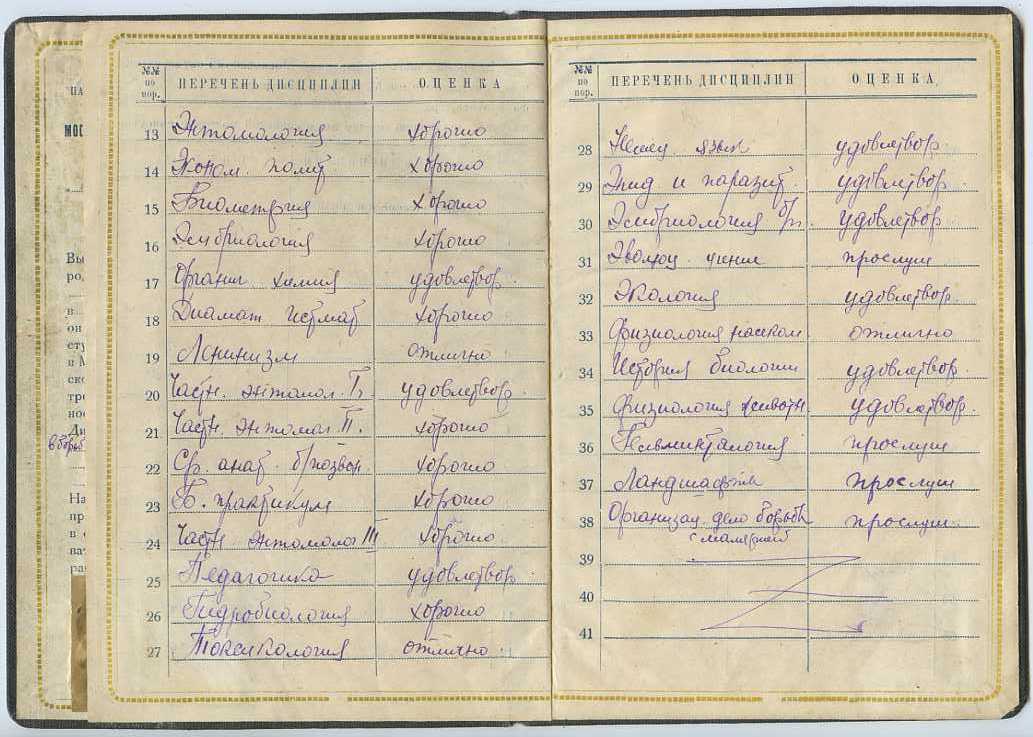 №№ по пор. ПЕРЕЧЕНЬ ДИСЦИПЛИН ОЦЕНКА
13 Энтомология хорошо
14 Эконом. полит хорошо
15 Биометрия хорошо
16 Эмбриология хорошо
17 Органич. химия удовлетвор.
18 Диамат Истмат хорошо
19 Ленинизм отлично
20 Частн. энтомол. I удовлетвор
21 Частн. энтомол. II. хорошо
22 Ср. анат. б/позвон. хорошо
23 Б. практикум хорошо
24 Частн энтомолог III хорошо
25 Педагогика удовлетвор
26 Гидробиология хорошо
27 Токсикология отлично
№№ по пор. ПЕРЕЧЕНЬ ДИСЦИПЛИН ОЦЕНКА
28 Немец. язык удовлетвор.
29 Эпид и паразит. удовлетвор.
30 Эмбриология удовлетвор.
31 Эволюц. учение прослуш
32 Экология удовлетвор.
33 Физиология насеком. отлично
34 История биологии удовлетвор.
35 Физиология животн удовлетвор.
36 Гельминтология прослуш
37 Ландшафты прослуш
38 Организац. дело борьбы прослуш.
с малярией
39
40
41
ПА
МОС
Вы
ро
в
он
сту
в М
ско
тре
нос
Ди
На
пр
в с
ват
ра